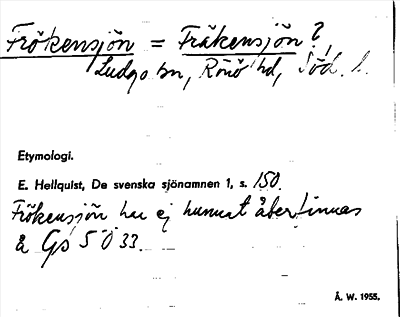 Frökensjön = Fräkensjön?
Ludgo sn, Rönö hd, Söd. l.
Etymologi.
E. Hellquist, De svenska sjönamnen 1, s. 150.
Frökensjön har ej kunnat återfinnas
å GS 5 Ö 33.
Å. W. 1955.